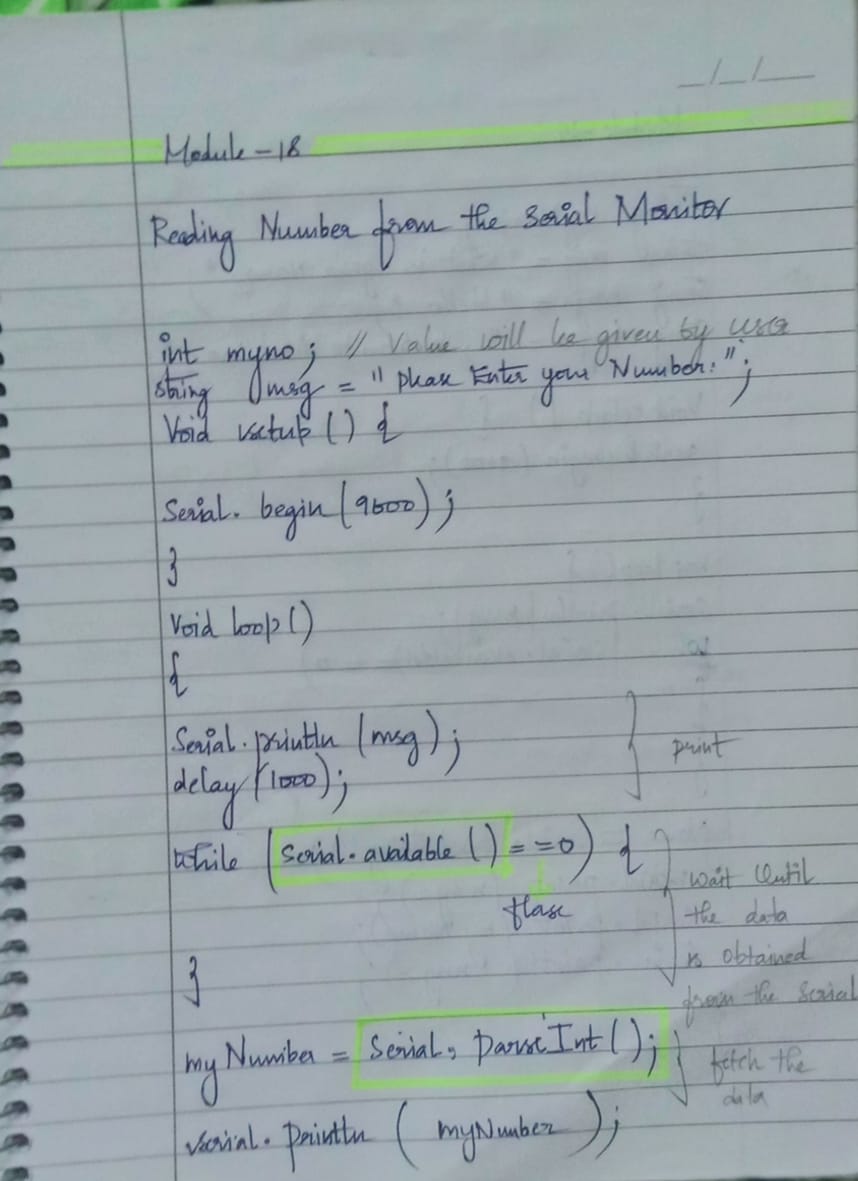 _/_/__
Module - 18
Reading Number from the Serial Monitor
int myno; // Value will be given by user
string msg = "please Enter your Number:";
Void setup () {
Serial. begin (9600);
}
Void loop ()
{
Serial.println (msg);
delay (1000);
print
while (Serial.available () == 0) {
flase
wait Until
the data
is obtained
from the serial
}
myNumber = Serial, ParseInt ();
fetch the
data
serial. Println ( myNumber );